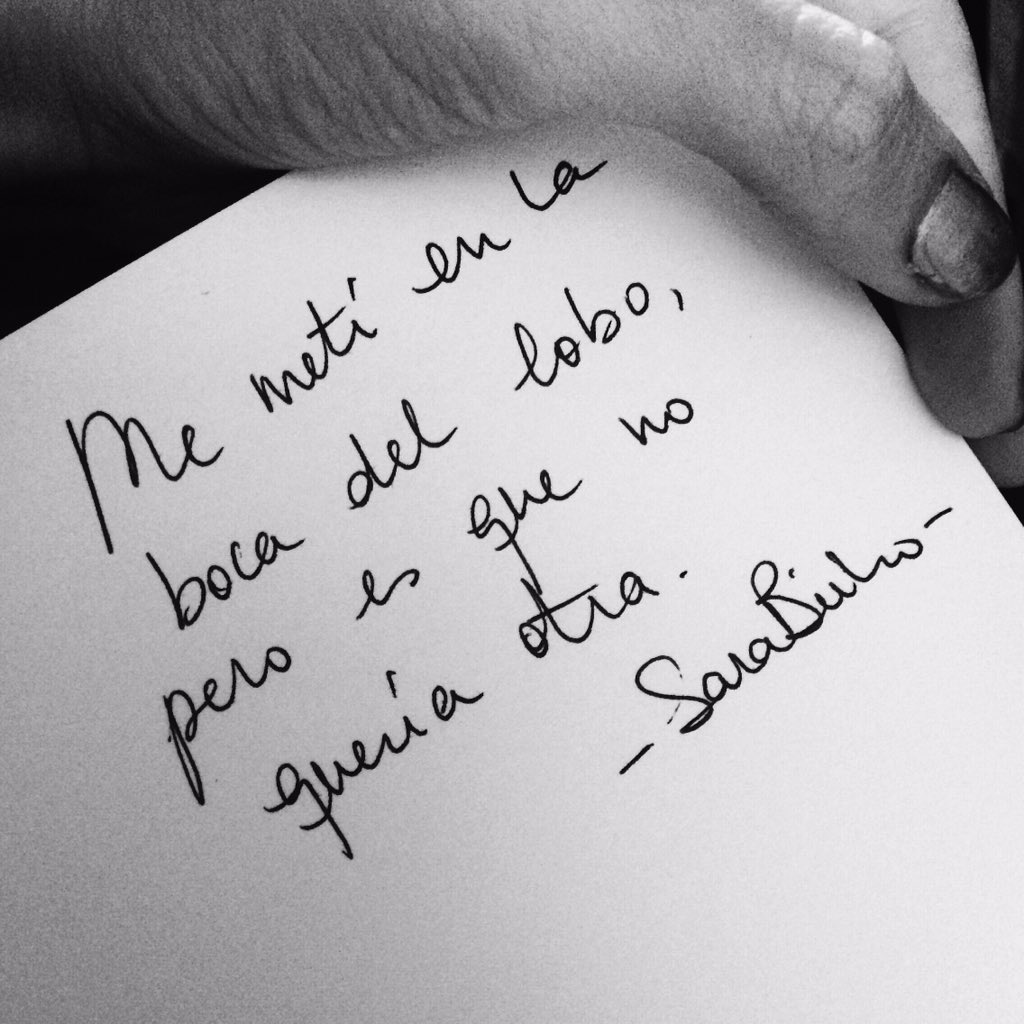 Me metí en la
boca del lobo,
pero es que no
quería otra.
- Sara Búho -